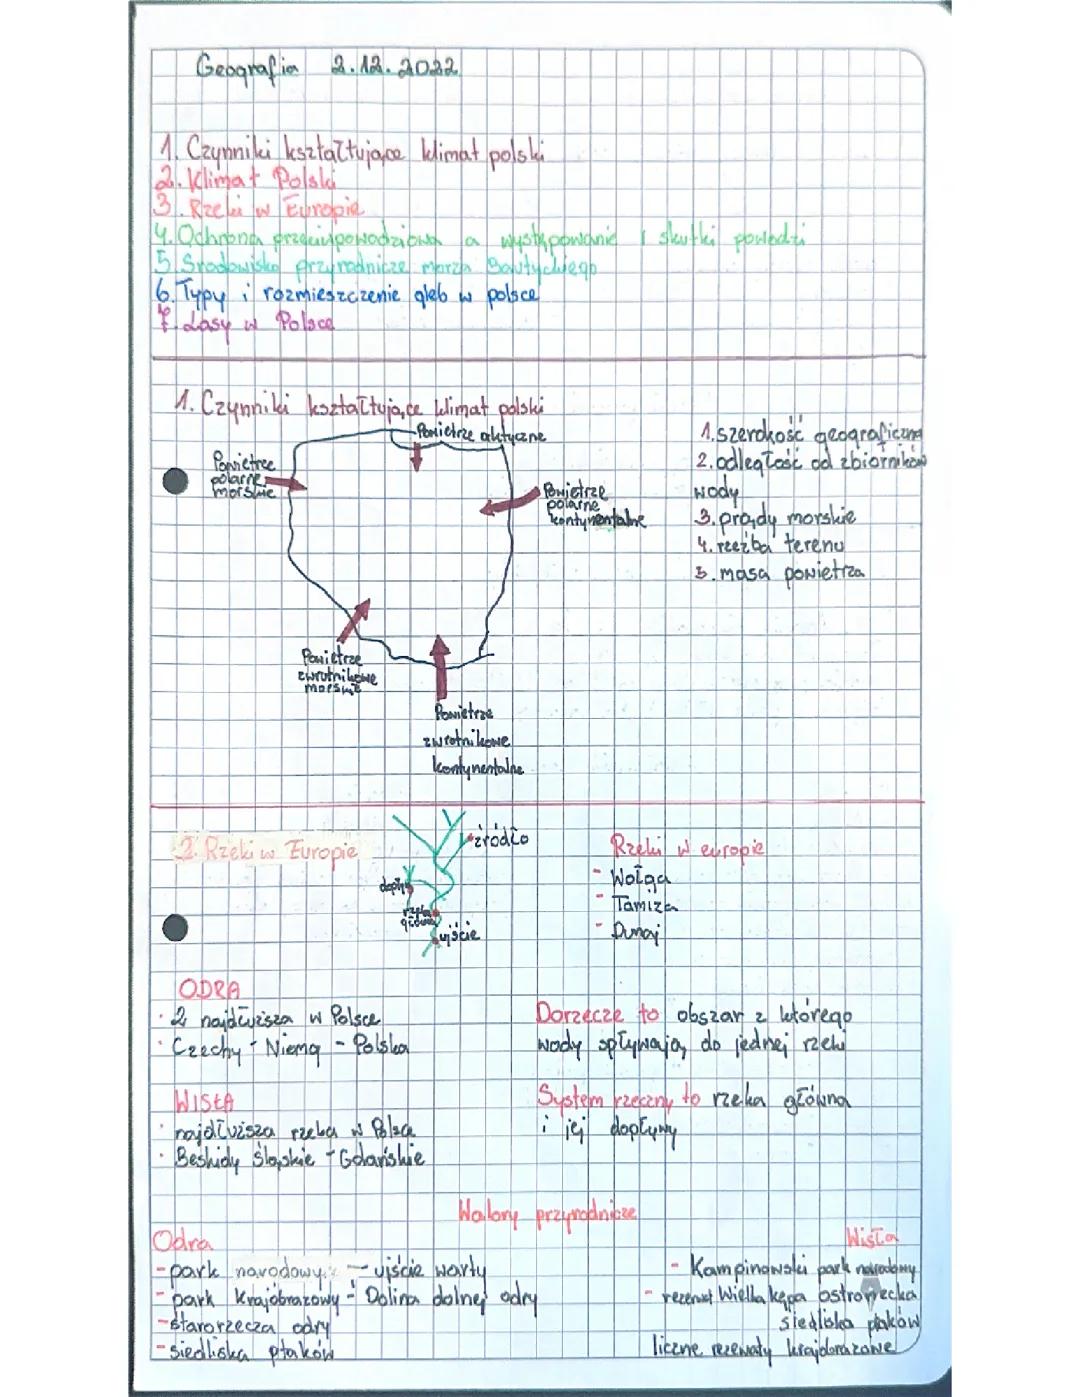 Geografia 2.12.2022
1. Czynniki kształtujące klimat polski
2. Klimat Polski
3. Rzeki w Europie
4. Ochrona przeciwpowodziowa a występowanie i skutki powodzi
5. Środowisko przyrodnicze morza Bałtyckiego
6. Typy i rozmieszczenie gleb w polsce
7. Lasy w Polsce
1. Czynniki kształtujące klimat polski
Powietrze aktyczne
Powietrze
polarne
morskie
Powietrze
polarne
kontynentalne
Powietrze
zwrotnikowe
morskie
Powietrze
zwrotnikowe
kontynentalne
1. szerokość geograficzna
2. odległość od zbiorników
wody
3. prądy morskie
4. rzeźba terenu
5. masa powietrza
2. Rzeki w Europie
źródło
dopływ
rzeka
główna
ujście
Rzeki w europie
- Wołga
- Tamiza
- Dunaj
ODRA
· 2 najdłuższa w Polsce
· Czechy - Niemcy - Polska
WISŁA
· najdłuższa rzeka w Polsce
· Beskidy Śląskie - Gdańskie
Dorzecze to obszar z którego
wody spływają do jednej rzeki
System rzeczny to rzeka główna
i jej dopływy
Walory przyrodnicze
Odra
- park narodowy - ujście warty
- park Krajobrazowy - Dolina dolnej odry
- starorzecza odry
- siedliska ptaków
Wisła
- Kampinowski park narodowy
- rezerwat Wielka kępa ostromecka
siedliska ptaków
liczne rezerwaty krajobrazowe